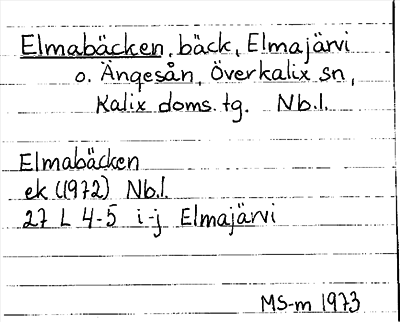 Elmabäcken, bäck, Elmajärvi
o. Ängesån, Överkalix sn,
Kalix doms. tg. Nb.l.
Elmabäcken
ek (1972) Nb.l.
27 L 4-5 i-j Elmajärvi
MS-m 1973